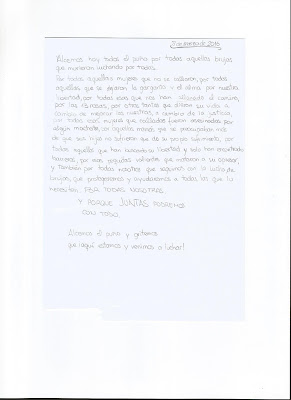 Alcemos hoy todas el puño por todas aquellas brujas
que murieron luchando por todas.
Por todas aquellas mujeres que no se callaron, por todas
aquellas que se dejaron la garganta y el alma por nuestra
libertad, por todas esas que nos han allanado el camino,
por las obreras, por otras tantas que dieron su vida a
cambio de mejorar las nuestras, a cambio de la justicia,
por todas esas mujeres que calladas fueron asesinadas por
algún machista, por aquellas madres que se preocupaban más
de que sus hijos no sufrieran que de su propio sufrimiento, por
todas aquellas que han buscado su libertad y solo han encontrado
barreras, por esas pequeñas valientes que mataron a su opresor,
y también por todas nosotras que seguimos con la lucha de
brujas, que protegeremos y ayudaremos a todas las que lo
necesiten. POR TODAS NOSOTRAS
Y PORQUE JUNTAS PODREMOS
CON TODO.
Alcemos el puño y gritemos
que ¡aquí estamos y venimos a luchar!